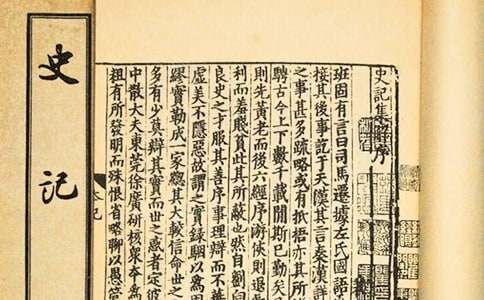 史記集解序
班固有言曰司馬遷據左氏國語
接其後事訖于天漢其言秦漢詳
之事甚多疏略或有抵捂亦其所
騁古今上下數千載閒斯已勤矣
則先黃老而後六經序遊俠則退處
利而羞賤貧此其所蔽也然自劉向
良史之才服其善序事理辯而不華
虛美不隱惡故謂之實錄駰以為固
繆實勒成一家總其大較信命世之
多有少莫辯其實而世之惑者定彼
中散大夫東莞徐廣研核衆本為
粗有所發明而殊恨省略聊以愚管
史記